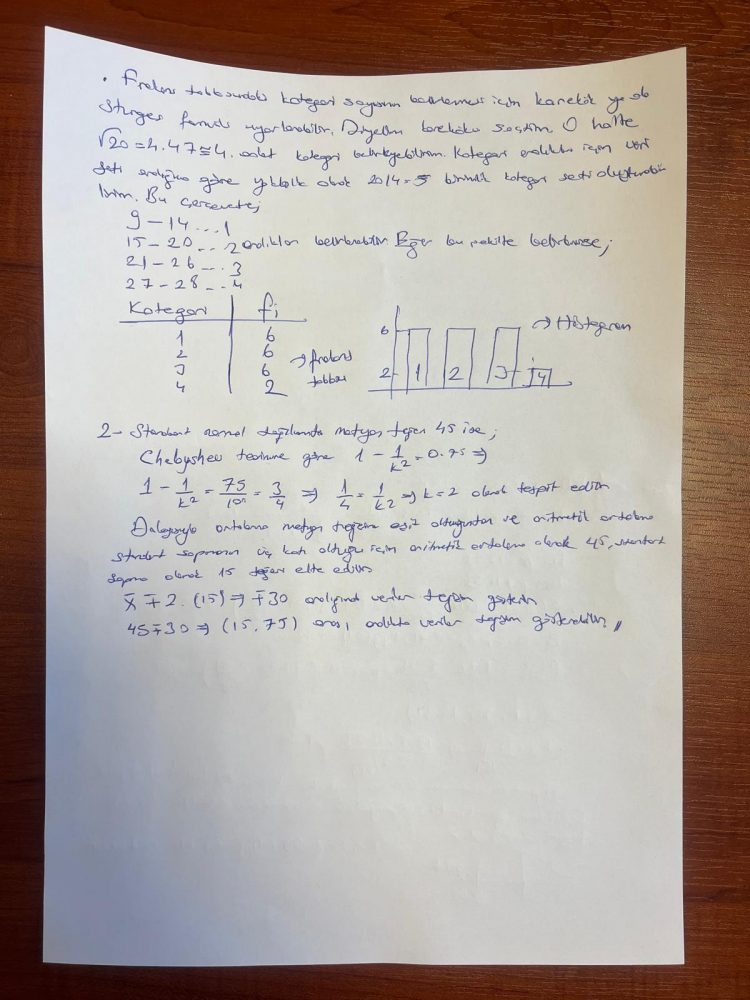 . Frekans tablosundaki kategori sayısının belirlenmesi için karekök ya da
Sturges formülü uyarlanabilir. Diyelim karekökü seçtim. O halde
√20 = 4.47 ≅ 4. adet kategori belirleyebilirim. Kategori aralıkları için veri
seti aralığına göre yaklaşık olarak 20/4 = 5 birimlik kategori seti oluşturabi
lirim. Bu çerçevede;
9 - 14 ... 1
15 - 20 ... 2 aralıkları belirlenebilir. Eğer bu şekilde belirlenirse;
21 - 26 ... 3
27 - 28 ... 4
Kategori fi
1 6
2 6
3 6 → frekans
4 2 tablosu
6 → Histogram
2 1 2 3 4
2- Standart normal dağılımda medyan değeri 45 ise;
Chebyshev teoremine göre 1 - 1/k² = 0.75 ⇒
1 - 1/k² = 75/100 = 3/4 ⇒ 1/4 = 1/k² ⇒ k = 2 olarak tespit edilir
Dolayısıyla ortalama medyan değerine eşit olduğundan ve aritmetik ortalama
standart sapmanın üç katı olduğu için aritmetik ortalama olarak 45, standart
sapma olarak 15 değeri elde edilir
x̄ ∓ 2. (15) ⇒ ∓30 aralığında veriler dağılım gösterir.
45 ∓ 30 ⇒ (15, 75) arası aralıkta veriler dağılım gösterebilir,,